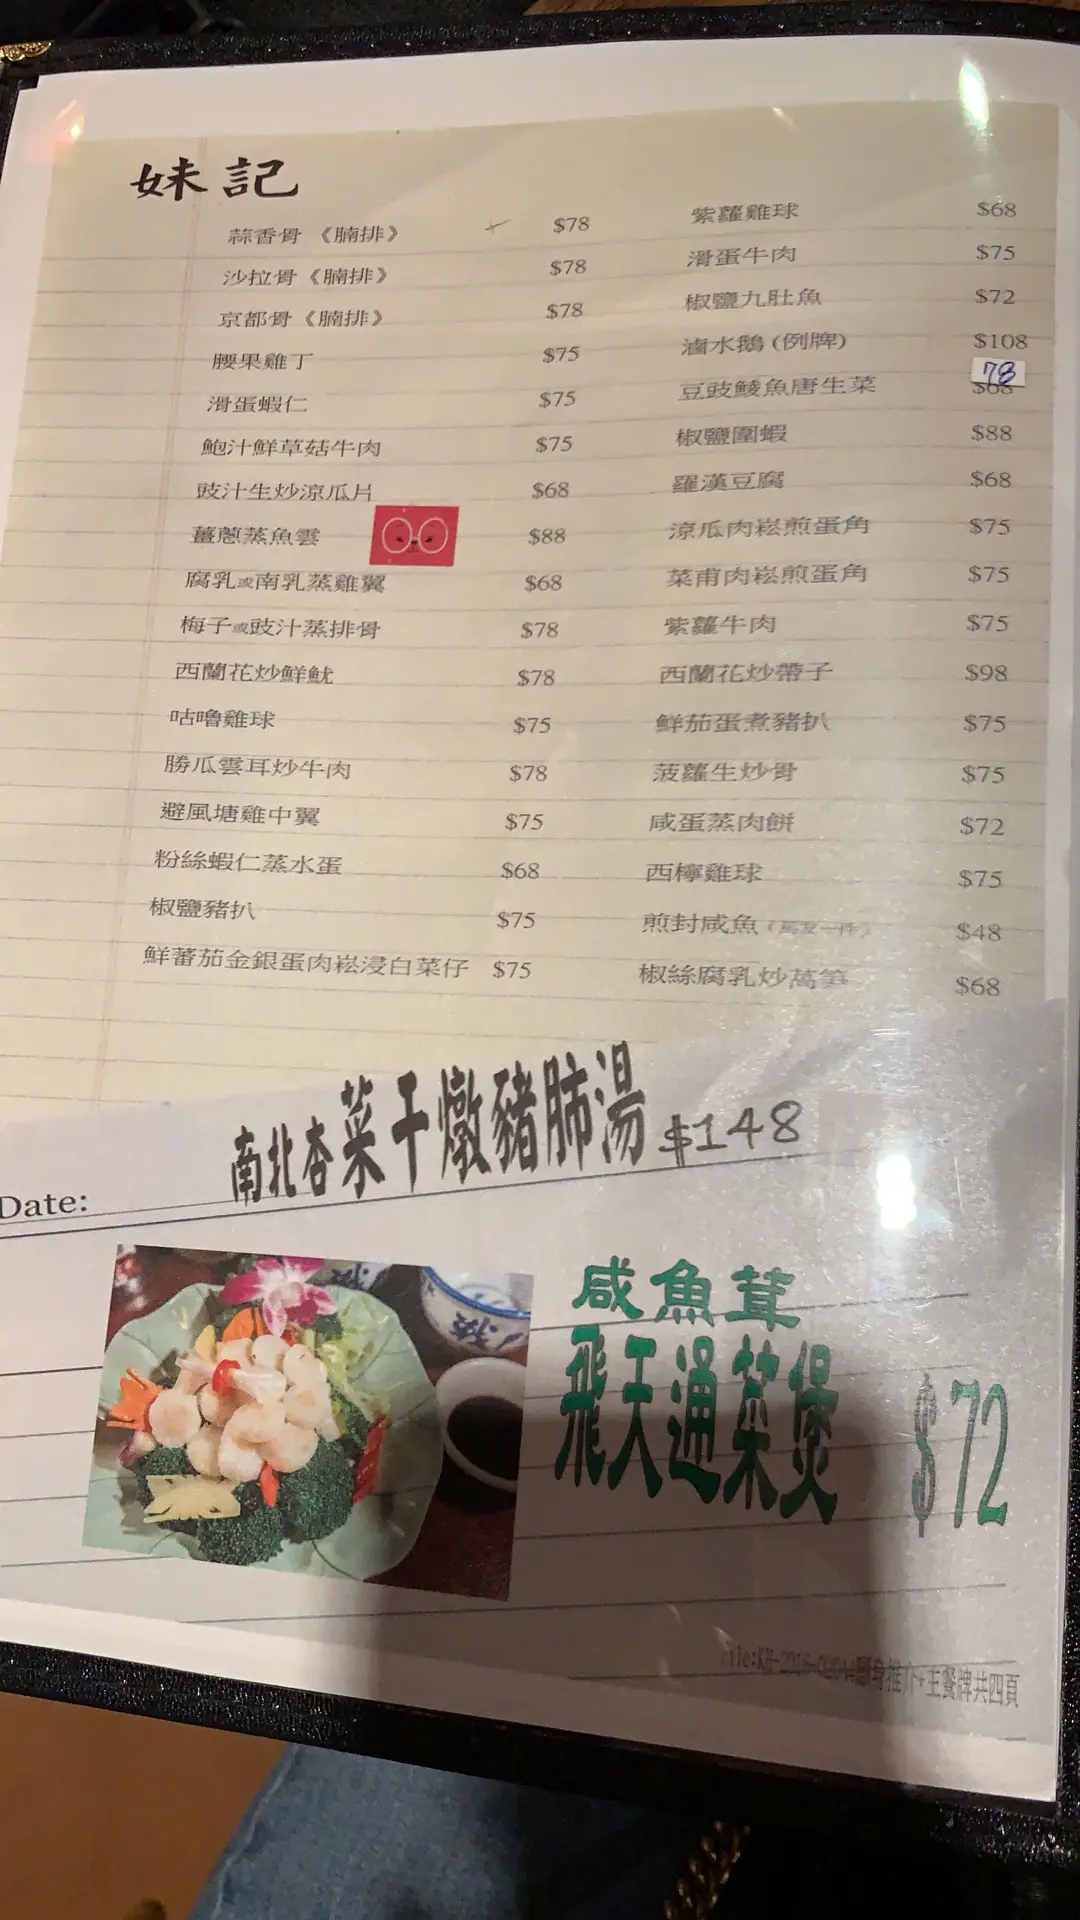 妹記
蒜香骨《腩排》 $78
沙拉骨《腩排》 $78
京都骨《腩排》 $78
腰果雞丁 $75
滑蛋蝦仁 $75
鮑汁鮮草菇牛肉 $75
豉汁生炒涼瓜片 $68
薑蔥蒸魚雲 $88
腐乳或南乳蒸雞翼 $68
梅子或豉汁蒸排骨 $78
西蘭花炒鮮魷 $78
咕嚕雞球 $75
勝瓜雲耳炒牛肉 $78
避風塘雞中翼 $75
粉絲蝦仁蒸水蛋 $68
椒鹽豬扒 $75
鮮蕃茄金銀蛋肉崧浸白菜仔 $75
紫蘿雞球 $68
滑蛋牛肉 $75
椒鹽九肚魚 $72
滷水鵝(例牌) $108
豆豉鯪魚唐生菜 78 $68
椒鹽圍蝦 $88
羅漢豆腐 $68
涼瓜肉崧煎蛋角 $75
菜甫肉崧煎蛋角 $75
紫蘿牛肉 $75
西蘭花炒帶子 $98
鮮茄蛋煮豬扒 $75
菠蘿生炒骨 $75
咸蛋蒸肉餅 $72
西檸雞球 $75
煎封咸魚 $48
椒絲腐乳炒萵笋 $68
南北杏菜干燉豬肺湯 $148
Date:
咸魚茸
飛天通菜煲 $72
推介+主餐牌共四頁